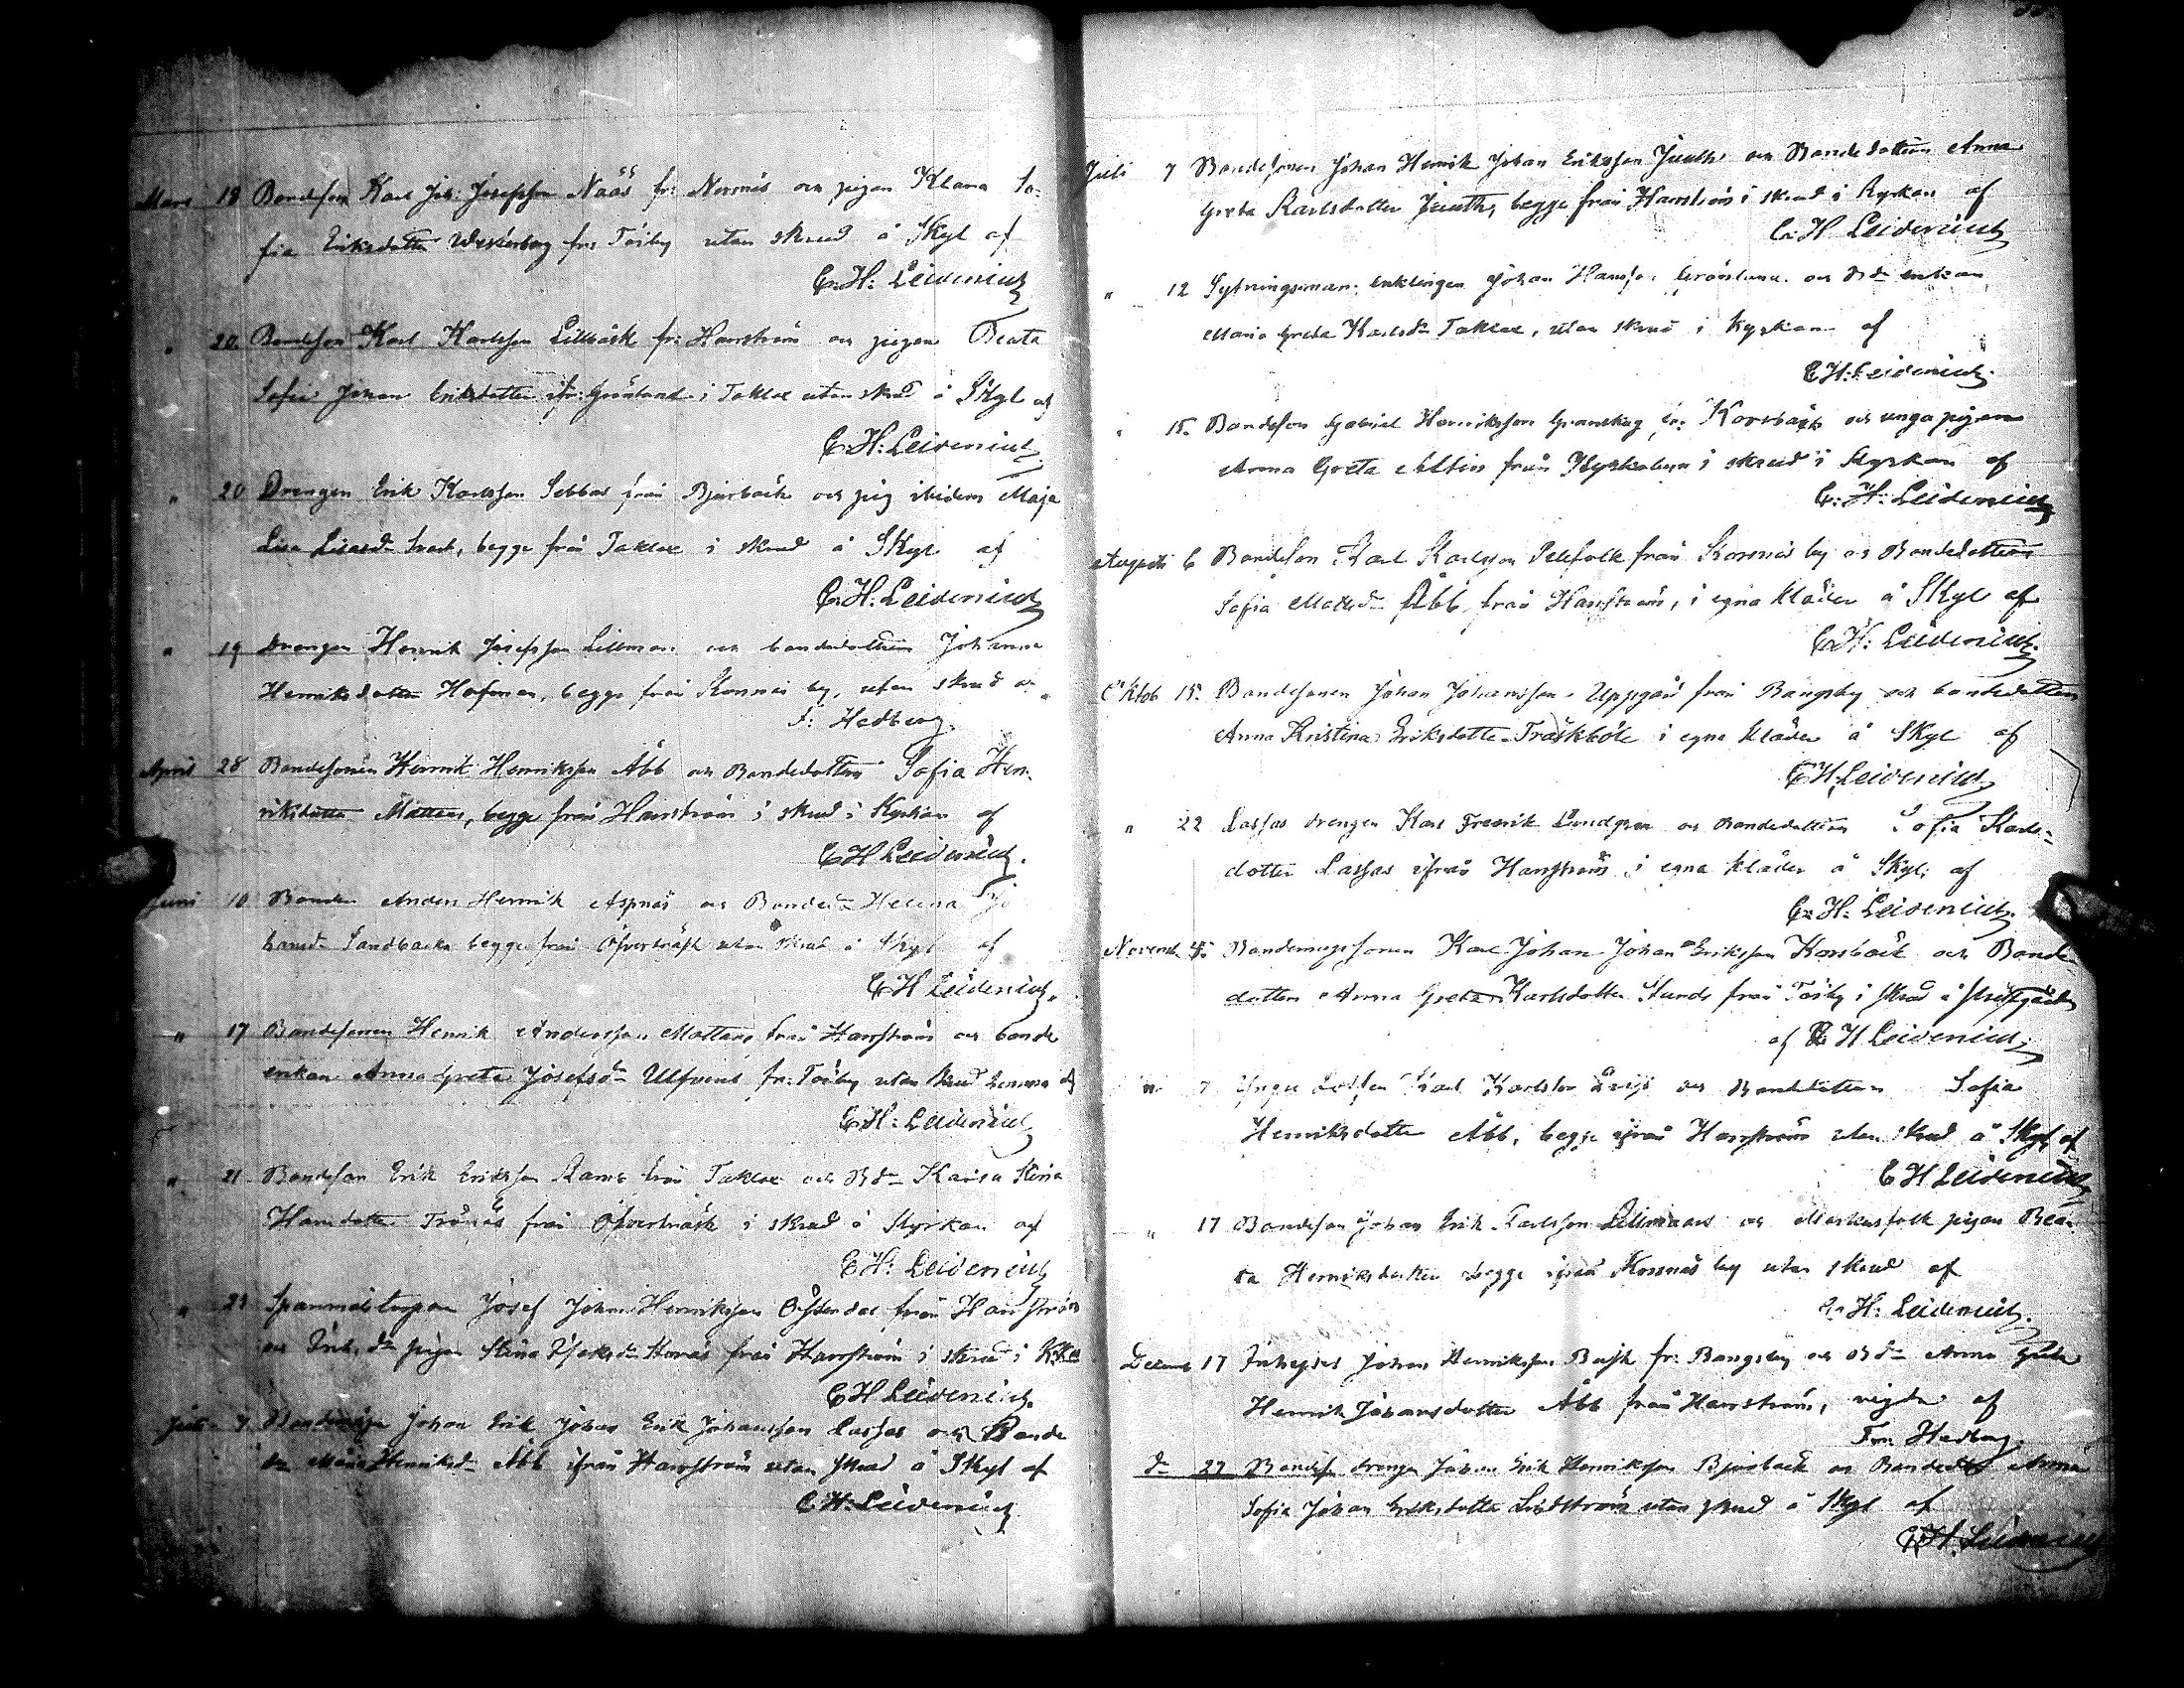 Mars 18 Bondeson Karl Joh: Josefsson Nääs fr: Norrnäs och pigan Klara So-
fia Eriksdotter Westerberg frn Töjby utan skrud å Skyl af
C. H: Leidenius
" 20 Bondeson Karl Karlsson Lillbäck fr: Harrström och pigan Beata
Sofia Johan Eriksdotter ifr: Grönlund i Taklax utan skrud å Skyl af
C. H: Leidenius
" 20 Drengen Erik Karlsson Sebbas från Bjurbäck och pig Maja
Lisa begge från Taklax i skrud å Skyl af
C. H: Leidenius
" 19 Drengen Henrik Josefsson Lillman och bondedottern Johanna
Henriksdotter Hofman, begge från Korsnäs by, utan skrud
F: Hedberg
April 28 Bondesonen Henrik Henriksson Åbb och Bondedottren Sofia Hen-
riksdotter Mattans, begge från Harrström i skrud i Kyrkan af
C H Leidenius.
Juni 10 Bonden Anders Henrik Aspnäs och Bonded:n Helena Jo
hansd:n Sandbacka begge från Öfverträsk utan skrud å Skyl af
C H Leidenius.
" 17 Bondesonen Henrik Andersson Mattans från Harrström och bonde
enkan Anna Greta Josefsd:n Ulfvens fr: Töjby utan skrud hemma af
C. H: Leidenius
" 21 Bondeson Erik Eriksson Rams från Taklax och B d:n Kaisa Stina
Hansdotter Trönäs från Öfverträsk i skrud å Kyrkan af
C H: Leidenius
" 23 Josef Johan Henriksson Österdal från Harrström
och d:n pigan Stina Isaksd:n från Harrström i skrud i
C H Leidenius.
Juli 7 Johan Erik Johan Erik Johansson Lassas och Bonde
d:n Maria Henriksd:n Åbb ifrån Harrström utan skrud å Skyl af
C. H: Leidenius
Juli 7 Bondesonen Johan Henrik Johan Eriksson Juuth och Bondedottren Anna
Greta Karlsdotter Juuth, begge från Harrström i skrud i Kyrkan af
C: H Leidenius
" 12 Sytningsman enklingen Johan Hansson Grönlund och B d:n enkan
Maria Greta Karlsd:n Taklax, utan skrud i Kyrkan af
C H: Leidenius.
" 15. Bondeson Gabriel Henriksson Granskog fr: Korsbäck och unga pigan
Anna Greta från Kyrkobyn i skrud i Kyrkan af
C: H: Leidenius
Augusti 6 Bondeson Karl Karlsson Pelefolk från Korsnäs by och Bondedottren
Sofia Matsd:n Åbb från Harrström, i egna kläder å Skyl af
C. H: Leidenius.
Oktob 15. Bondesonen Johan Johansson Uppgård från Bångsby och bondedottren
Anna Kristina Eriksdotter Träskböle i egna kläder å Skyl af
C H: Leidenius
" 22 Lassas drengen Karl Fredrik Lundgren och Bondedottren Sofia Karls-
dotter Lassas ifrån Harrström i egna kläder å Skyl. af
C. H: Leidenius.
Novemb. Karl Johan Johan Eriksson Korsbäck och Bonde
dottren Anna Greta Karlsdotter Sunds från Töjby i skrud å Prestgården
af C H Leidenius.
" 7 Karl Karlsson och Bondedottren Sofia
Henriksdotter Åbb, begge ifrån Harrström utan skrud å Skyl af
C H Leidenius
" 17 Bondeson Johan Erik Karlsson Lillmans och Markusfolk pigan Bea-
ta Henriksdotter begge ifrån Korsnäs by utan skrud af
C. H: Leidenius.
Decemb 17 Johan Henriksson Busk fr: Bångsby och B d:n Anna Greta
Henrik Johansdotter Åbb från Harrström, vigda af
Fr: Hedberg.
d:n 27 drengen Johan Erik Henriksson Bjurbäck och Bondedtr Anna
Sofia Johan Eriksdotter Lindström utan skrud å Skyl af
C. H. Leidenius